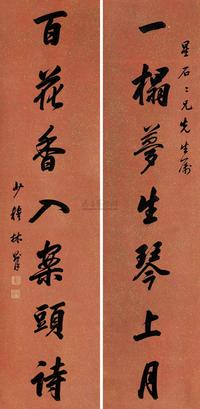 星石二兄先生属
一榻夢生琴上月
百花香入案頭詩
少穆林則徐